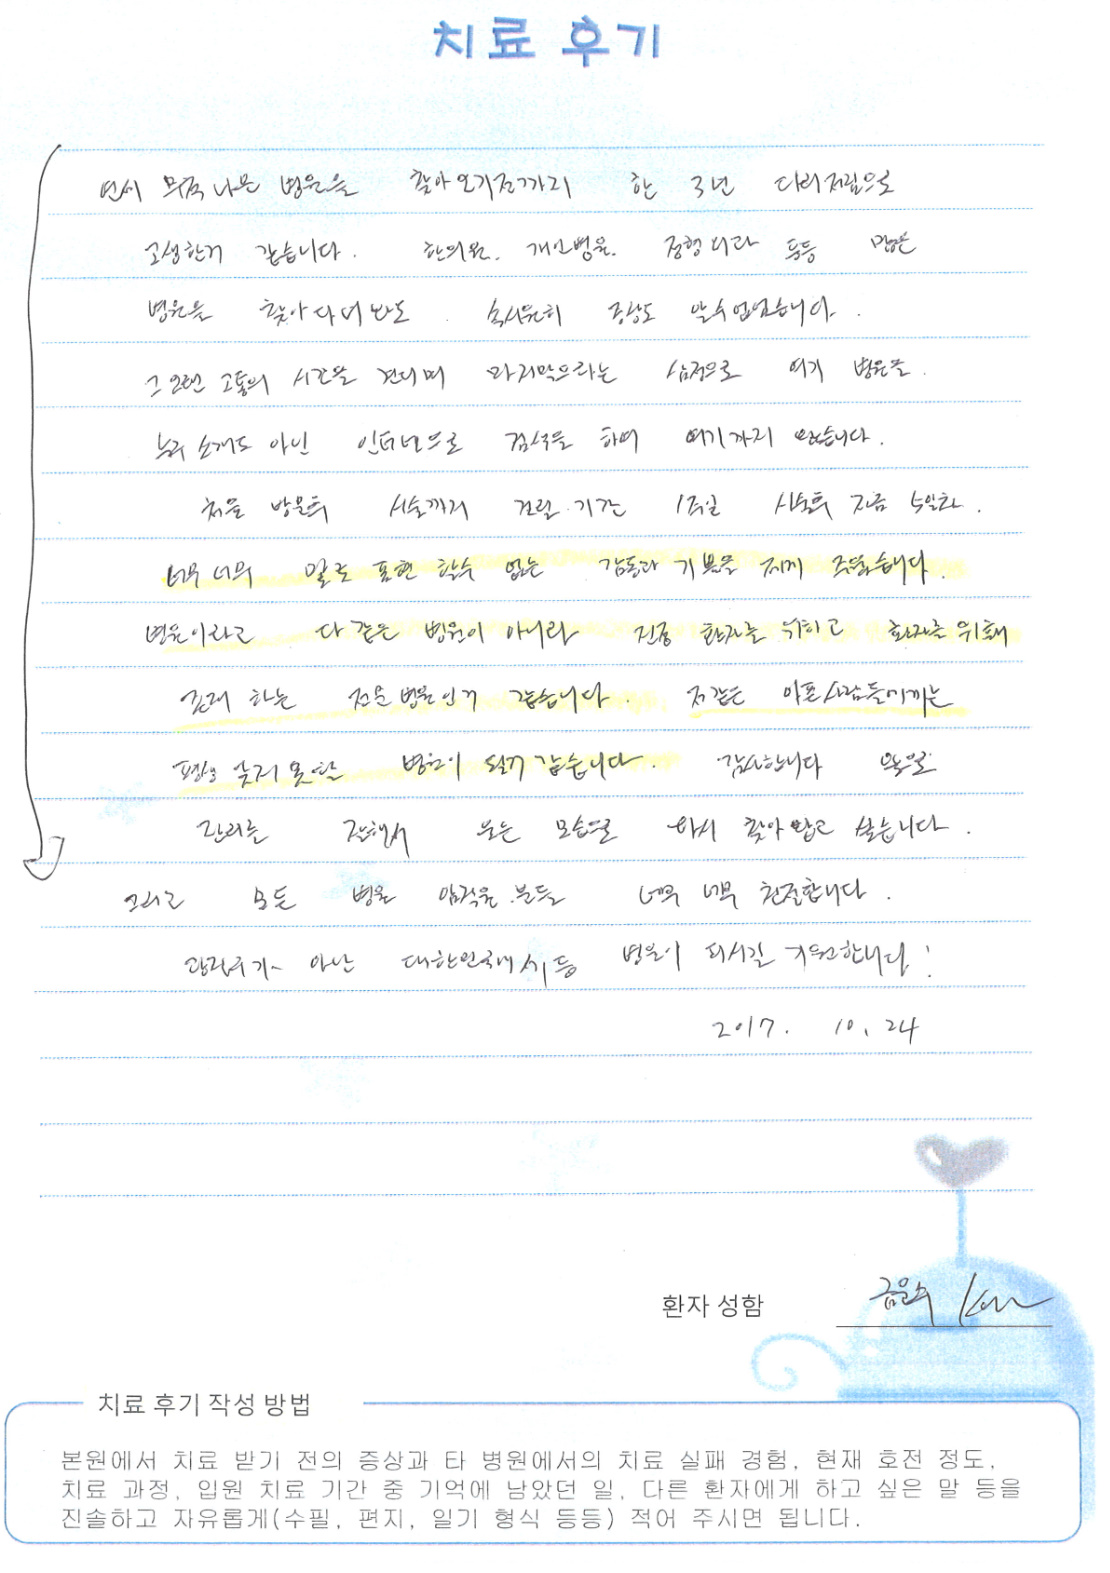 치료 후기
연세 무척 나은 병원을 찾아오기전까지 한 3년 다리저림으로
고생한거 같습니다. 한의원, 개인병원, 정형외과 등등 많은
병원을 찾아 다녀봐도 속시원히 증상도 알수없었습니다.
그 오랜 고통의 시간을 견디며 마지막으라는 심정으로 여기 병원을
누구 소개도 아닌 인터넷으로 검색을 하여 여기까지 왔습니다.
처음 방문후 시술까지 걸린 기간 1주일 시술후 지금 5일차.
너무 너무 말로 표현 할수 없는 감동과 기쁨을 저에게 주었습니다.
병원이라고 다 같은 병원이 아니라 진정 환자를 위하고 환자를 위해
존재 하는 전문 병원인거 같습니다. 저같은 아픈사람들에게는
평생 잊지 못할 병원이 될거 같습니다. 감사합니다 앞으로
관리를 잘해서 웃는 모습으로 다시 찾아 뵙고 싶습니다.
그리고 모든 병원 임직원.분들 너무 너무 친절합니다.
아닌 대한민국에서 1등 병원이 되시길 기원합니다!
2017. 10. 24
환자 성함
치료 후기 작성 방법
본원에서 치료 받기 전의 증상과 타 병원에서의 치료 실패 경험, 현재 호전 정도,
치료 과정, 입원 치료 기간 중 기억에 남았던 일, 다른 환자에게 하고 싶은 말 등을
진솔하고 자유롭게(수필, 편지, 일기 형식 등등) 적어 주시면 됩니다.